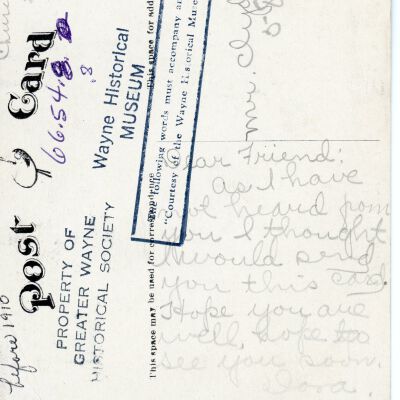 Post Card
66.54.8
.8
before 1910
PROPERTY OF
GREATER WAYNE
HISTORICAL SOCIETY
Wayne Historical
MUSEUM
This space may be used for correspondence
This space for add
The following words must accompany
"Courtesy of the Wayne Historical Mus
Mr. Clyd
Dear Friend:
as I have
not heard from
you I thought
I would send
you this card
Hope you are
well, hope to
see you soon.
Dora.